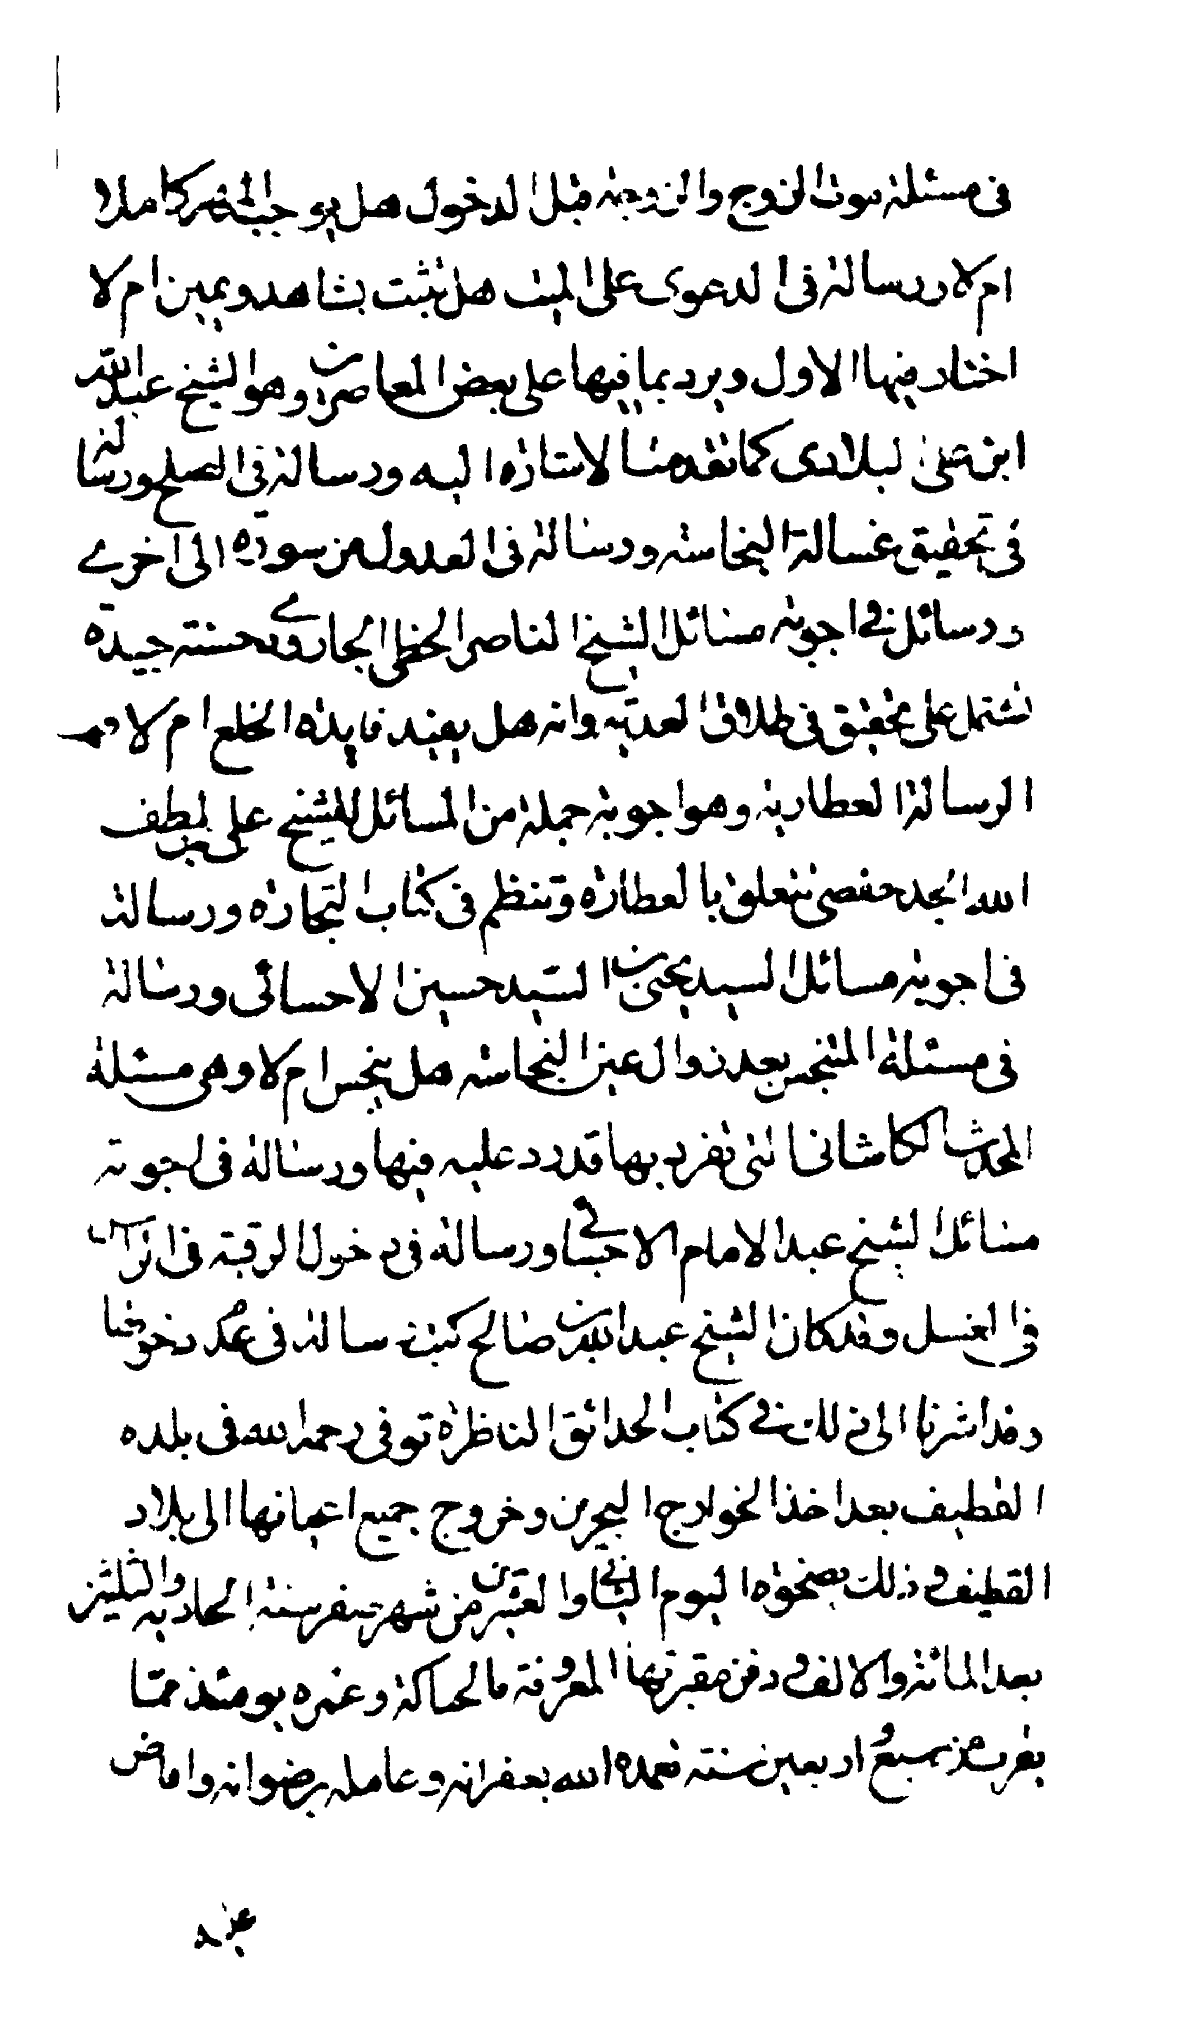 في مسئلة موت الزوج والزوجة قبل الدخول هل يوجب المهر كاملا
ام لا ورسالة في الدعوى على الميت هل تثبت بشاهد ويمين ام لا
اختار فيها الاول ويرد بما فيها على بعض المعاصرين وهو الشيخ عبد الله
ابن علي البلادي كما تقدمت الاشارة اليه ورسالة في الصلح ورسالة
في تحقيق غسالة النجاسة ورسالة في العدول من سورة الى اخرى
ورسائل في اجوبة مسائل الشيخ ناصر الخطي الجارودي حسنة جيدة
تشتمل على تحقيق في طلاق العدية وانه هل يفيد فايدة الخلع ام لا
الرسالة العطارية وهو اجوبة جملة من المسائل للشيخ علي بن لطف
الله الجدحفصي تتعلق بالعطارة وتنظم في كتاب التجارة ورسالة
في اجوبة مسائل السيد يحيى بن السيد حسين الاحسائي ورسالة
في مسئلة المتنجس بعد زوال عين النجاسة هل ينجس ام لا وهي مسئلة
المحدث الكاشاني التي تفرد بها قد رد عليه فيها ورسالة في اجوبة
مسائل الشيخ عبد الامام الاحسائي ورسالة في دخول الرقبة في الراس
في الغسل وقد كان الشيخ عبد الله بن صالح كتب رسالة في عدم دخولها
وقد اشرنا الى ذلك في كتاب الحدائق الناظرة توفي رحمه الله في بلده
القطيف بعد اخذ الخوارج البحرين وخروج جميع اعيانها الى بلاد
القطيف وذلك بضحوة اليوم الثاني والعشرين من شهر صفر سنة الحادية والثلثين
بعد المائة والالف ودفن مقبرتها المعروفة بالحباكة وعمره يومئذ مما
يقرب من سبع اربعين سنة تغمده الله بغفرانه وعامله برضوانه وافاض